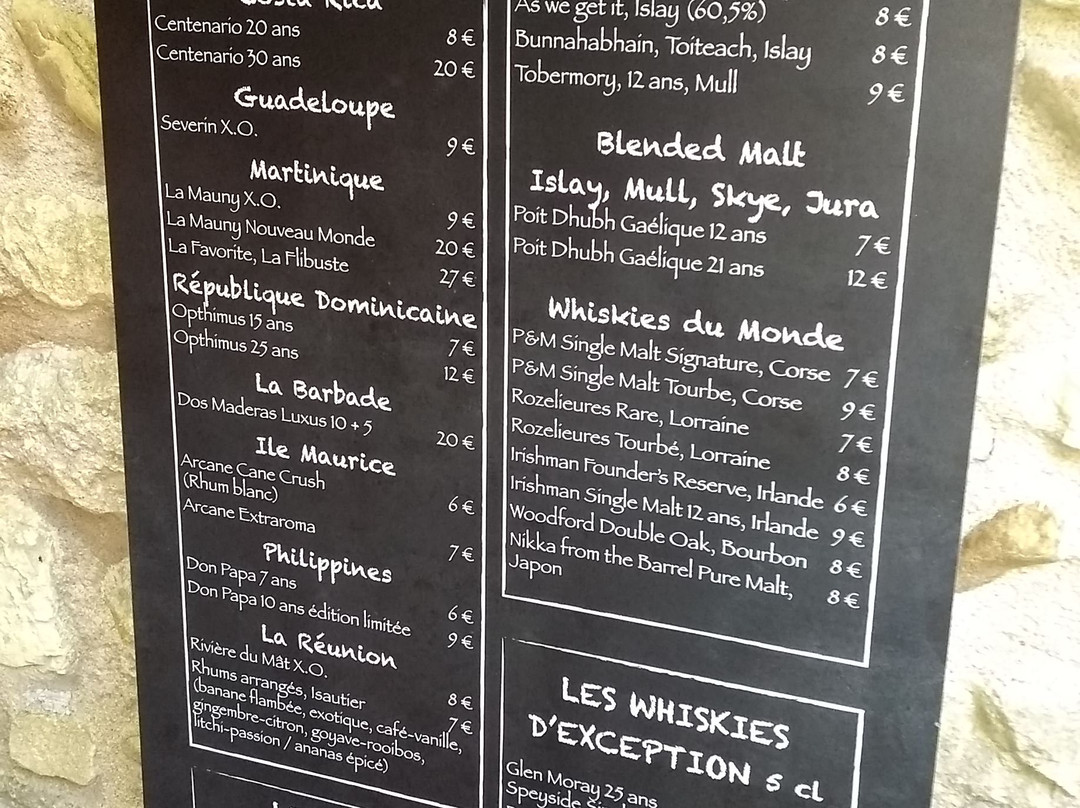 Costa Rica
Centenario 20 ans 8 €
Centenario 30 ans 20 €
Guadeloupe
Severin X.O. 9 €
Martinique
La Mauny X.O. 9 €
La Mauny Nouveau Monde 20 €
La Favorite, La Flibuste 27 €
République Dominicaine
Opthimus 15 ans 7 €
Opthimus 25 ans 12 €
La Barbade
Dos Maderas Luxus 10 + 5 20 €
Ile Maurice
Arcane Cane Crush
(Rhum blanc) 6 €
Arcane Extraroma 7 €
Philippines
Don Papa 7 ans 6 €
Don Papa 10 ans édition limitée 9 €
La Réunion
Rivière du Mât X.O. 8 €
Rhums arrangés, Isautier 7 €
(banane flambée, exotique, café-vanille,
gingembre-citron, goyave-rooibos,
litchi-passion / ananas épicé)
As we get it, Islay (60,5%) 8 €
Bunnahabhain, Toiteach, Islay 8 €
Tobermory, 12 ans, Mull 9 €
Blended Malt
Islay, Mull, Skye, Jura
Poit Dhubh Gaélique 12 ans 7 €
Poit Dhubh Gaélique 21 ans 12 €
Whiskies du Monde
P&M Single Malt Signature, Corse 7 €
P&M Single Malt Tourbe, Corse 9 €
Rozelieures Rare, Lorraine 7 €
Rozelieures Tourbé, Lorraine 8 €
Irishman Founder's Reserve, Irlande 6 €
Irishman Single Malt 12 ans, Irlande 9 €
Woodford Double Oak, Bourbon 8 €
Nikka from the Barrel Pure Malt, 8 €
Japon
LES WHISKIES
D'EXCEPTION 5 cl
Glen Moray 25 ans
Speyside